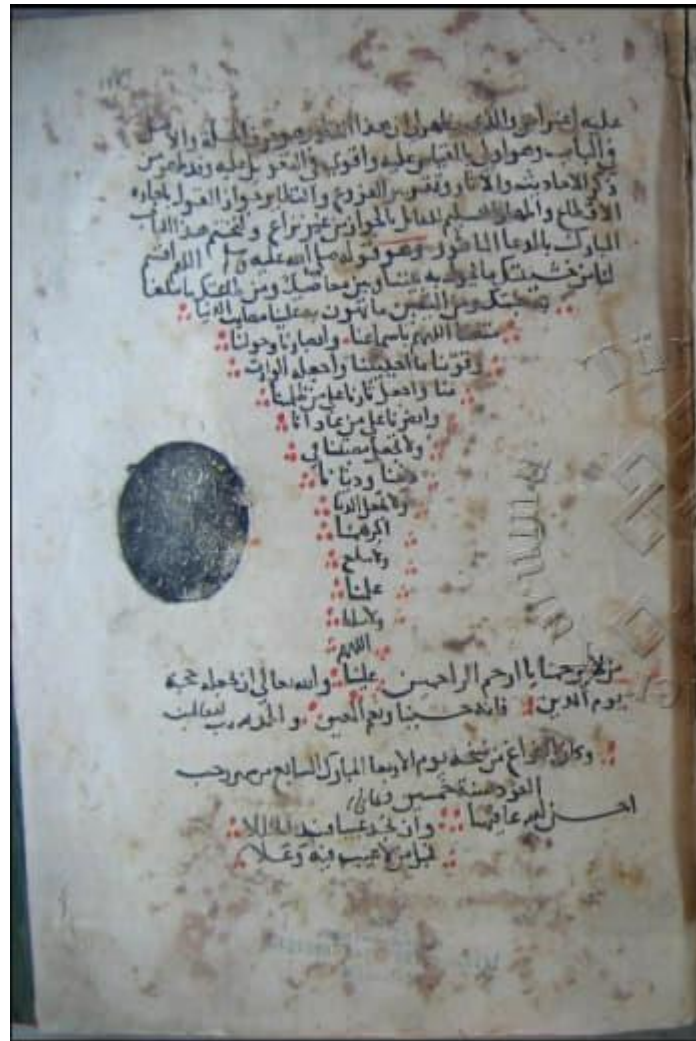 عليه اعتراض والذى يظهر ان هذا
فى الباب وهو اولى بالقياس عليه واقوى فى التعويل عليه
ذكر الاحاديث والاثار وتقرير الفروع والنظاير جواز القول
الاقطاع من غير نزاع ولنختم هذا الباب
المبارك بالدعا الماثور وهو قوله صلى الله عليه وسلم اللهم اقسم
لنا من خشيتك ما تحول به بيننا وبين معاصيك ومن طاعتك ما تبلغنا
به جنتك ومن اليقين ما تهون به علينا مصايب الدنيا
متعنا اللهم باسماعنا وابصارنا وحولنا
وقوتنا ما احييتنا واجعله الوارث
منا واجعل ثارنا على من ظلمنا
وانصرنا على من عادانا
ولا تجعل مصيبتنا فى
ديننا ودنيانا
ولا تجعل الدنيا
اكبر همنا
ولا مبلغ
علمنا
ولا تسلط
اللهم
علينا من لا يرحمنا يا ارحم الراحمين والله تعالى ان يجعله حجة
يوم الدين فانه حسبنا ونعم المعين والحمد لله رب العالمين
وكان الفراغ من نسخه يوم الاربعا المبارك السابع من شهر رجب
الفرد سنة خمسين وثمانى
احسن الله عاقبتها وان تجد عيبا فسد الخللا
فجل من لا عيب فيه وعلا